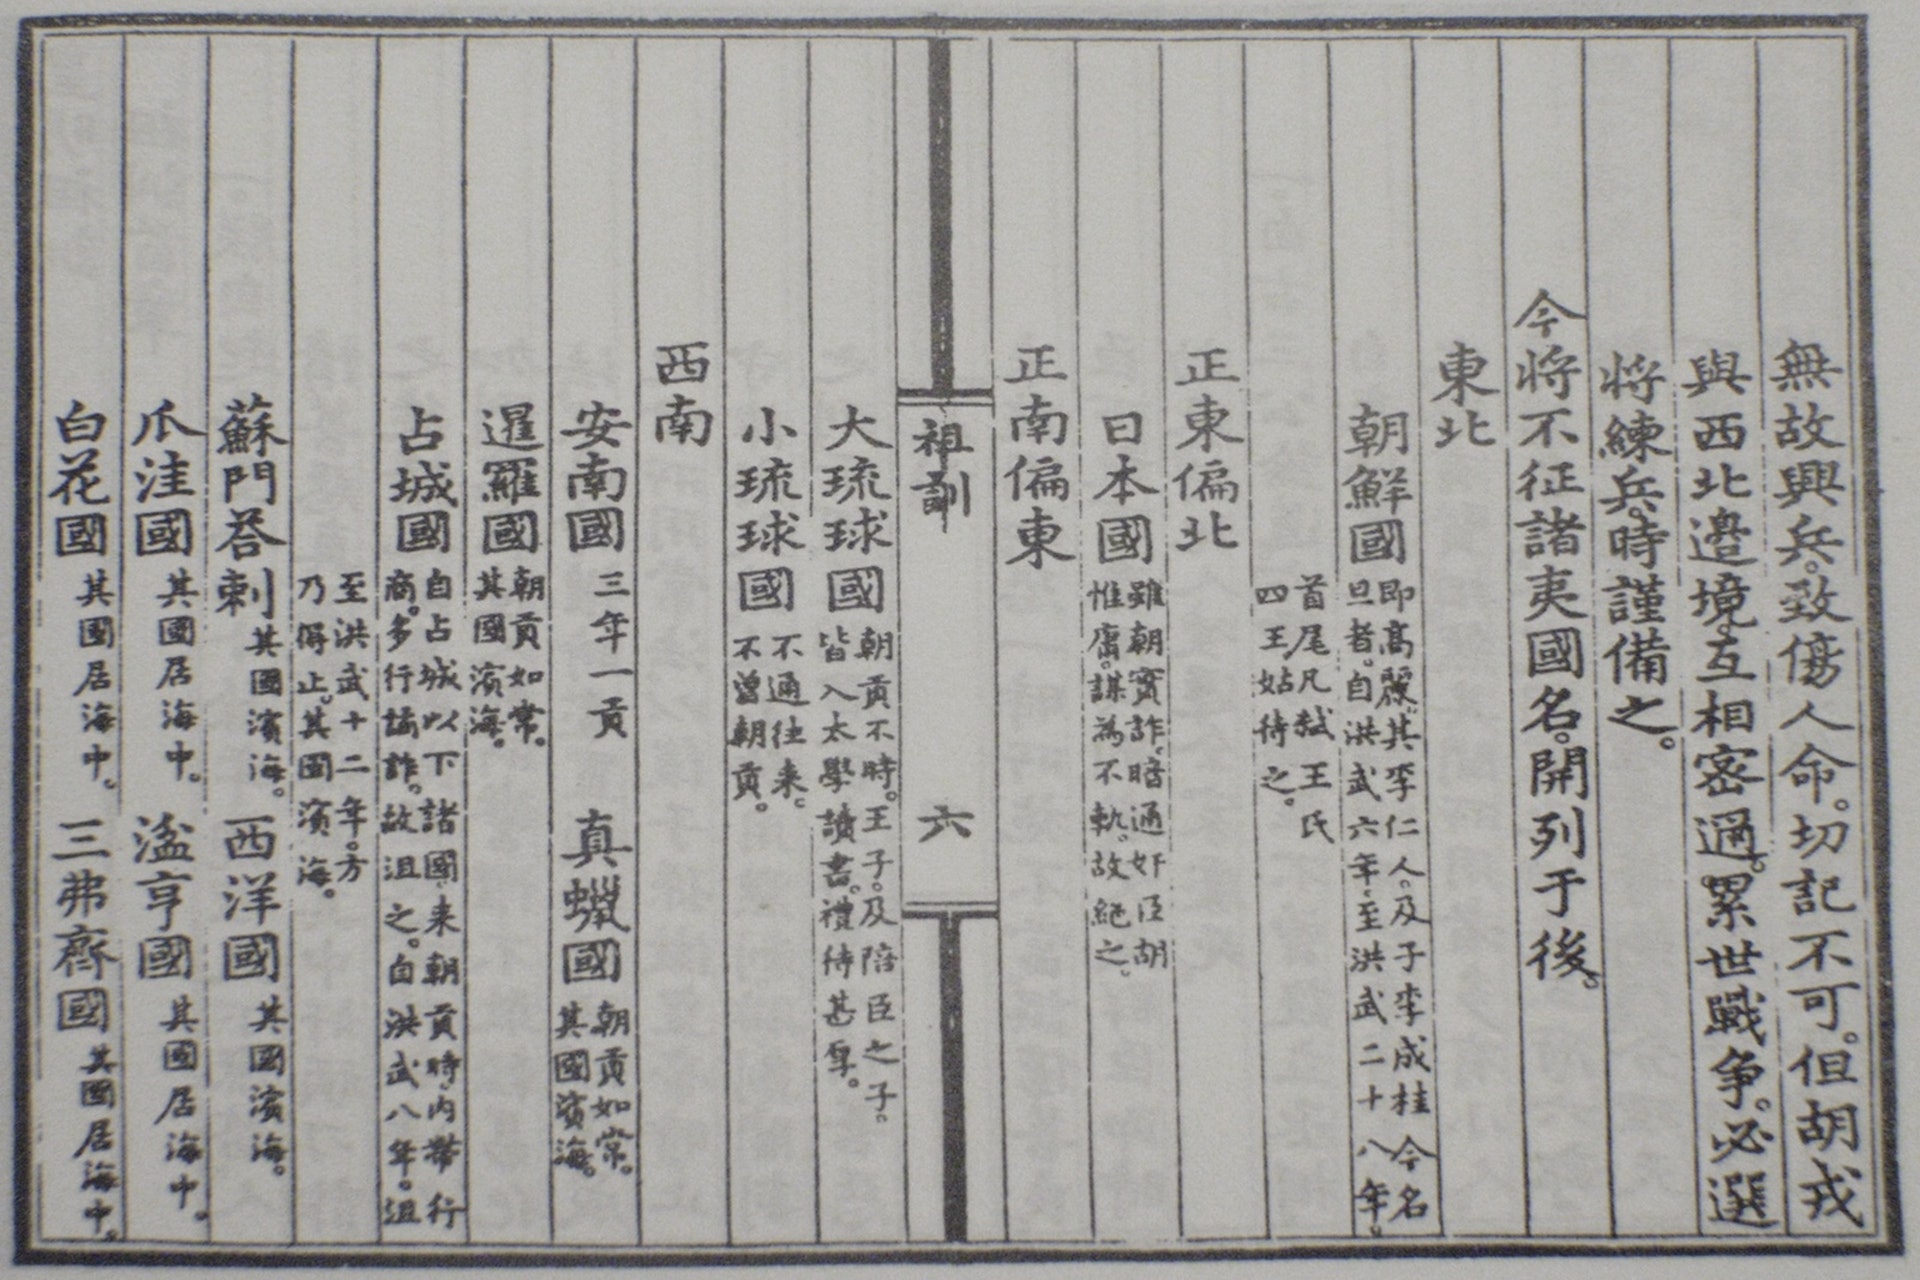 無故興兵。致傷人命。切記不可。但胡戎
與西北邊境。互相密邇。累世戰爭。必選
将練兵。時謹備之。
今将不征諸夷國名。開列于後。
東北
朝鮮國
即高麗。其李仁人。及子李成桂今名
旦者。自洪武六年。至洪武二十八年。
首尾凡弑王氏
四王。姑待之。
正東偏北
日本國
雖朝實詐。暗通奸臣胡
惟庸。謀為不軌。故絕之。
正南偏東
祖訓
六
大琉球國
朝貢不時。王子。及陪臣之子。
皆入太學讀書。禮待甚厚。
小琉球國
不通往来。
不曾朝貢。
西南
安南國 三年一貢
真蠟國
朝貢如常。
其國濱海。
暹羅國
朝貢如常。
其國濱海。
占城國
自占城以下諸國。来朝貢時。内帶行
商。多行譎詐。故沮之。自洪武八年。沮
至洪武十二年。方
乃得止。其國濱海。
蘇門荅剌 其國濱海。
西洋國 其國濱海。
爪洼國 其國居海中。
湓亨國 其國居海中。
白花國 其國居海中。
三弗齊國 其國居海中。